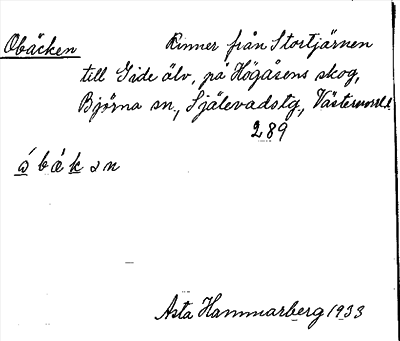 Obäcken Rinner från Stortjärnen
till Gide älv, på Högåsens skog,
Björna sn, Själevadstg, Västernorrl. l.
289
á b ä̀ k ə n
Asta Hammarberg 1933